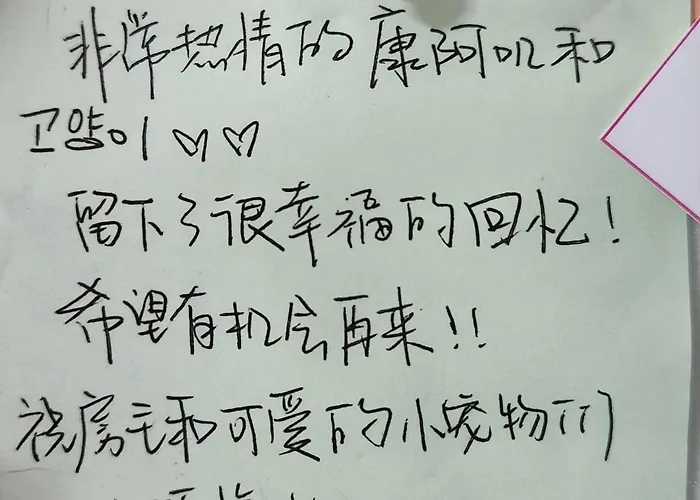 非常热情的康阿叽和
고양이♡♡
留下了很幸福的回忆！
希望有机会再来！！
祝房主和可爱的小宠物们